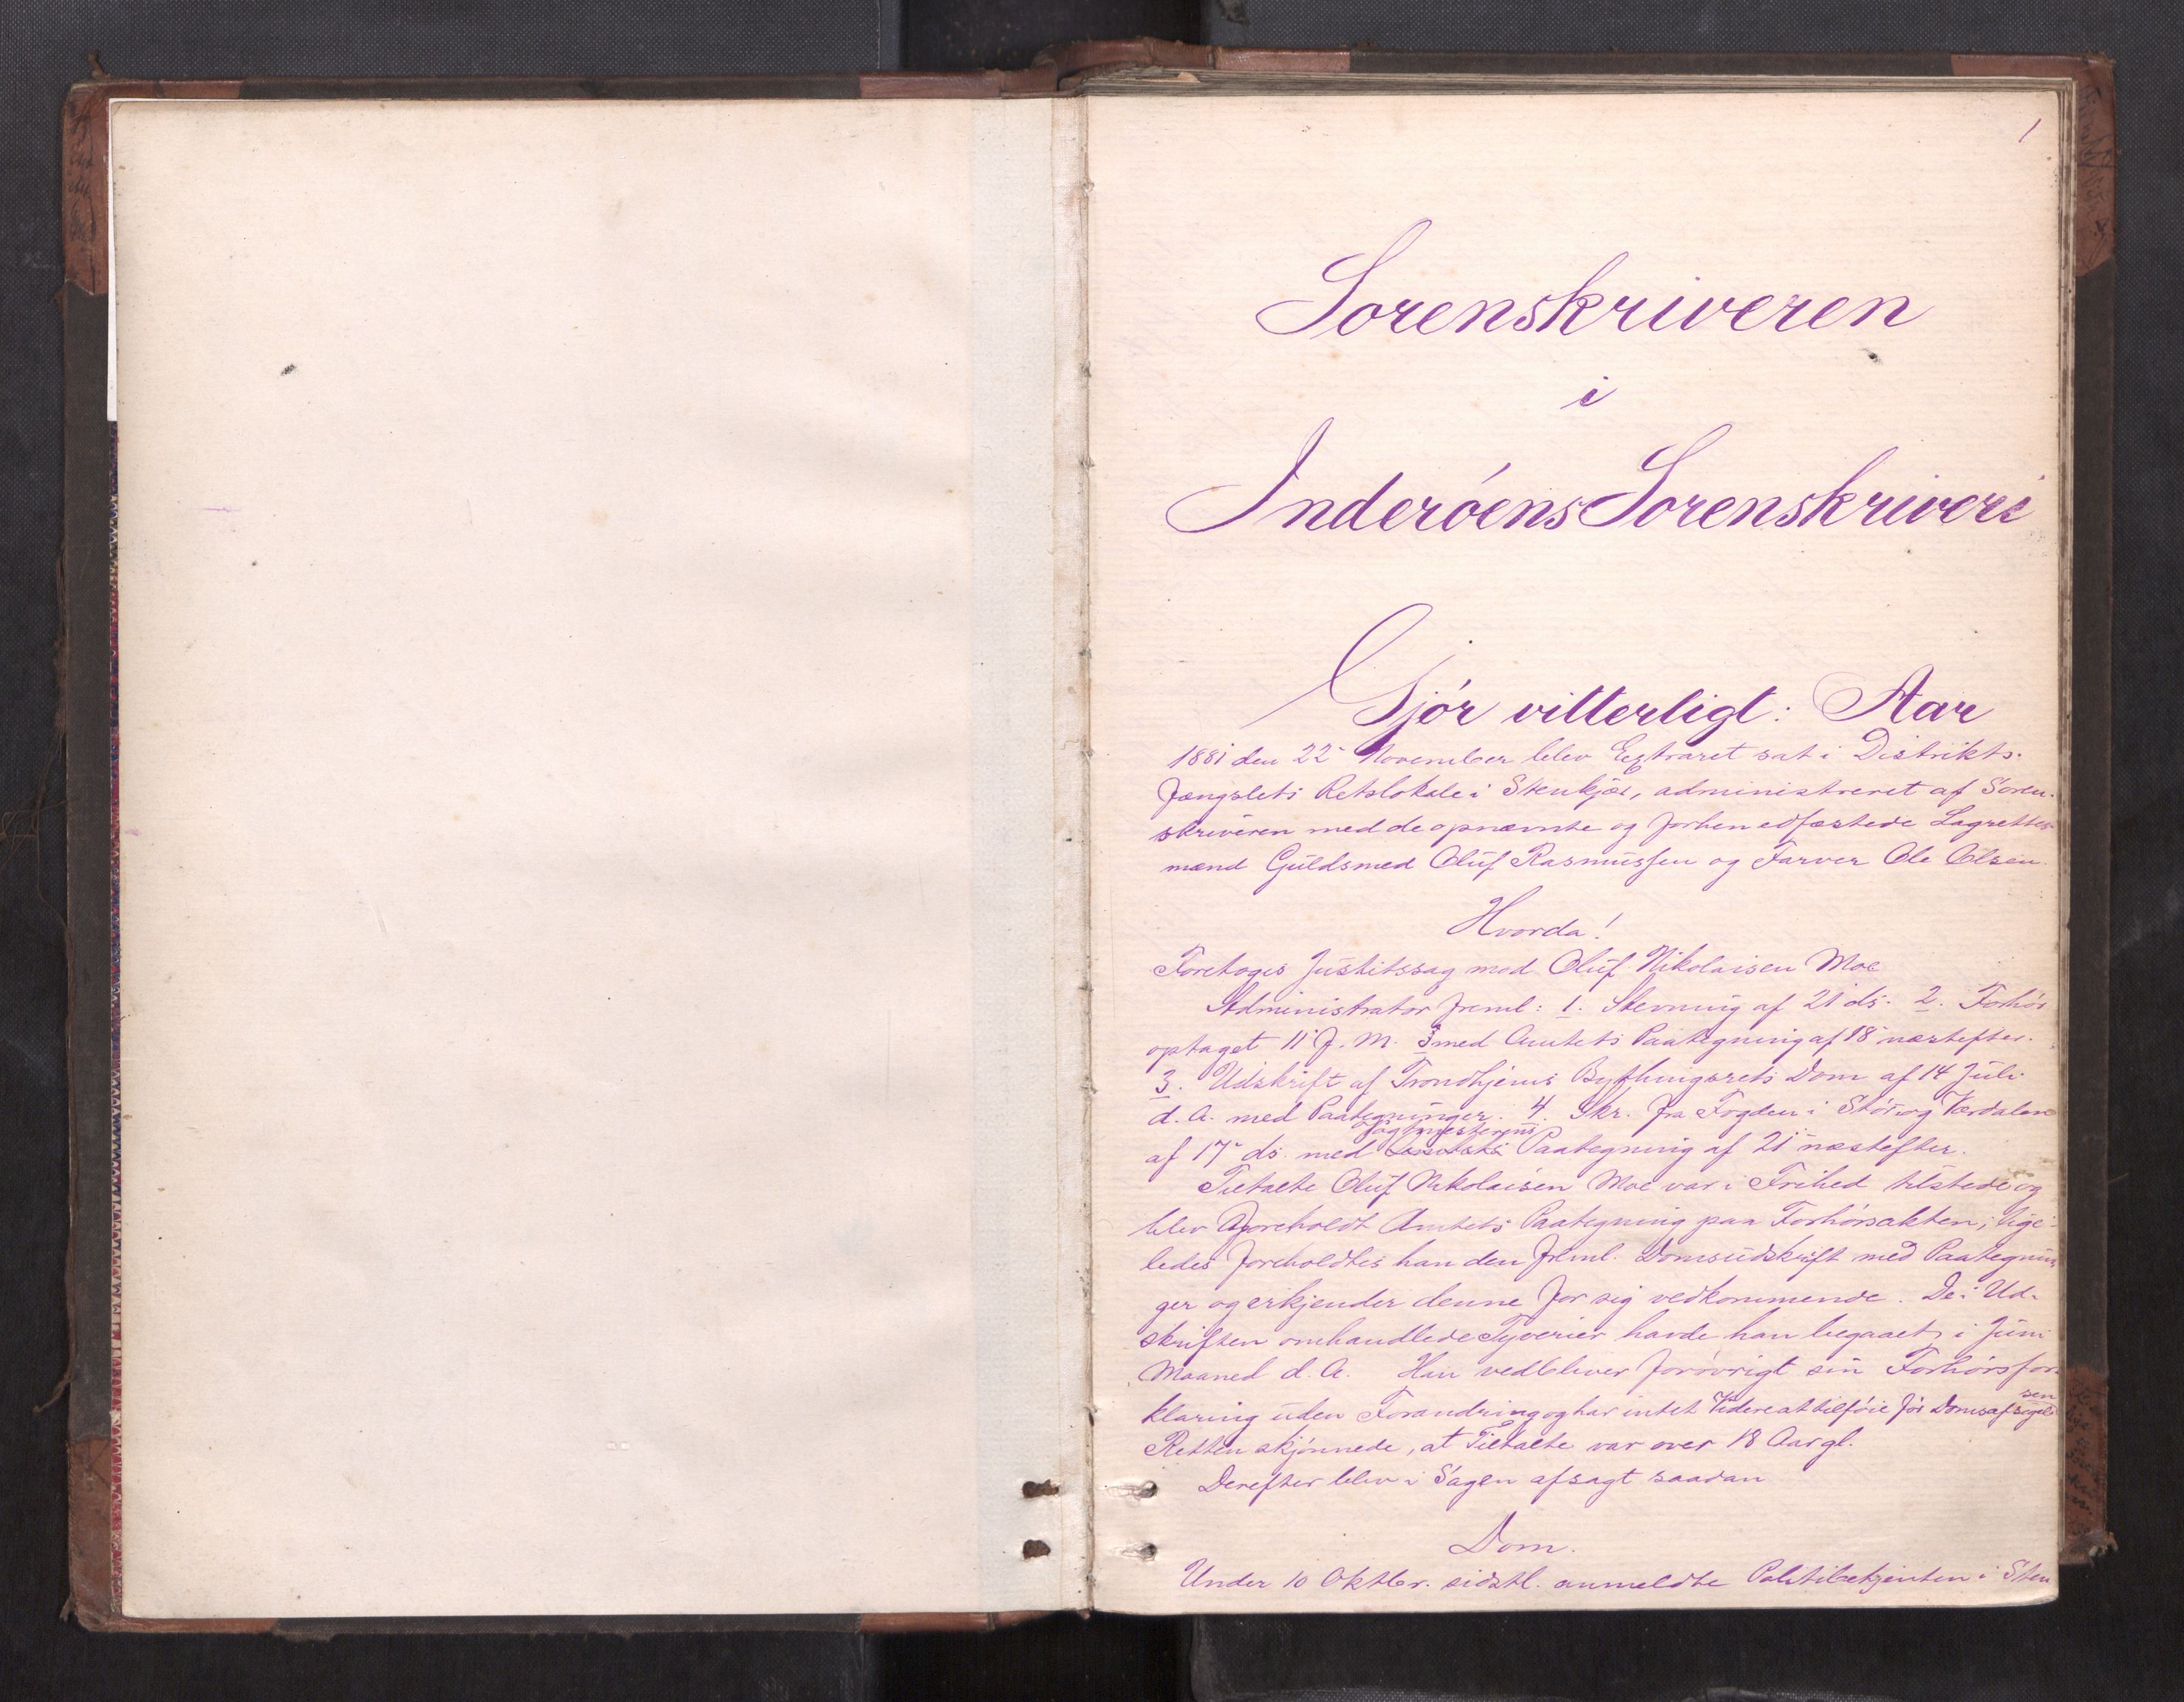 1
Sorenskriveren
i
Inderöens Sorenskriveri
Gjör vitterligt: Aar
1881 den 22 November blev Extraret sat i Distrikts-
fængslets Retslokale i Stenkjær, administreret af Soren-
skriveren med de opnævnte og forhen edfæstede Lagrettes-
mænd Guldsmed Oluf Rasmussen og Farver Ole Olsen.
Hvorda!
Foretoges Justitssag mod Oluf Nikolaisen Moe
Administrator freml: 1. Stevning af 21 ds. 2. Forhör
optaget 11 f. M. med Amtets Paategning af 18 næstefter.
3. Udskrift af Trondhjems Bythingsrets Dom af 14 Juli
d. A. med Paategninger. 4. Skr. fra Fogden i Stör og Værdalen
af 17 ds. med Fogtmesterens Paategning af 21 næstefter.
Tiltalte Oluf Nikolaisen Moe var i Frihed tilstede og
blev foreholdt Amtets Paategning paa Forhörsakten; lige-
ledes foreholdtes han den freml. Domsudskrift med Paategnin-
ger og erkjender denne for sig vedkommende. De i Ud-
skriften omhandlede Tyverier havde han begaaet i Juni
Maaned d. A. Han vedbliver forövrigt sin Forhörsfor-
klaring uden Forandring og har intet Videre at tilföie för Domsafsigelsen
Retten skjönnede, at Tiltalte var over 18 Aar gl.
Derefter blev i Sagen afsagt saadan
Dom.
Under 10 Oktbr. sidstl. anmeldte Politibetjenten i Sten